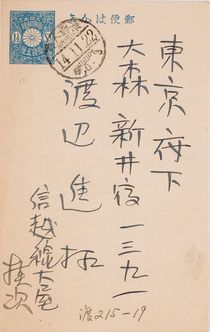 郵便はかき
東京府下
大森新井宿一三九一
渡辺進拓
信越線大屋
桂次
14.11.22
渡215-19